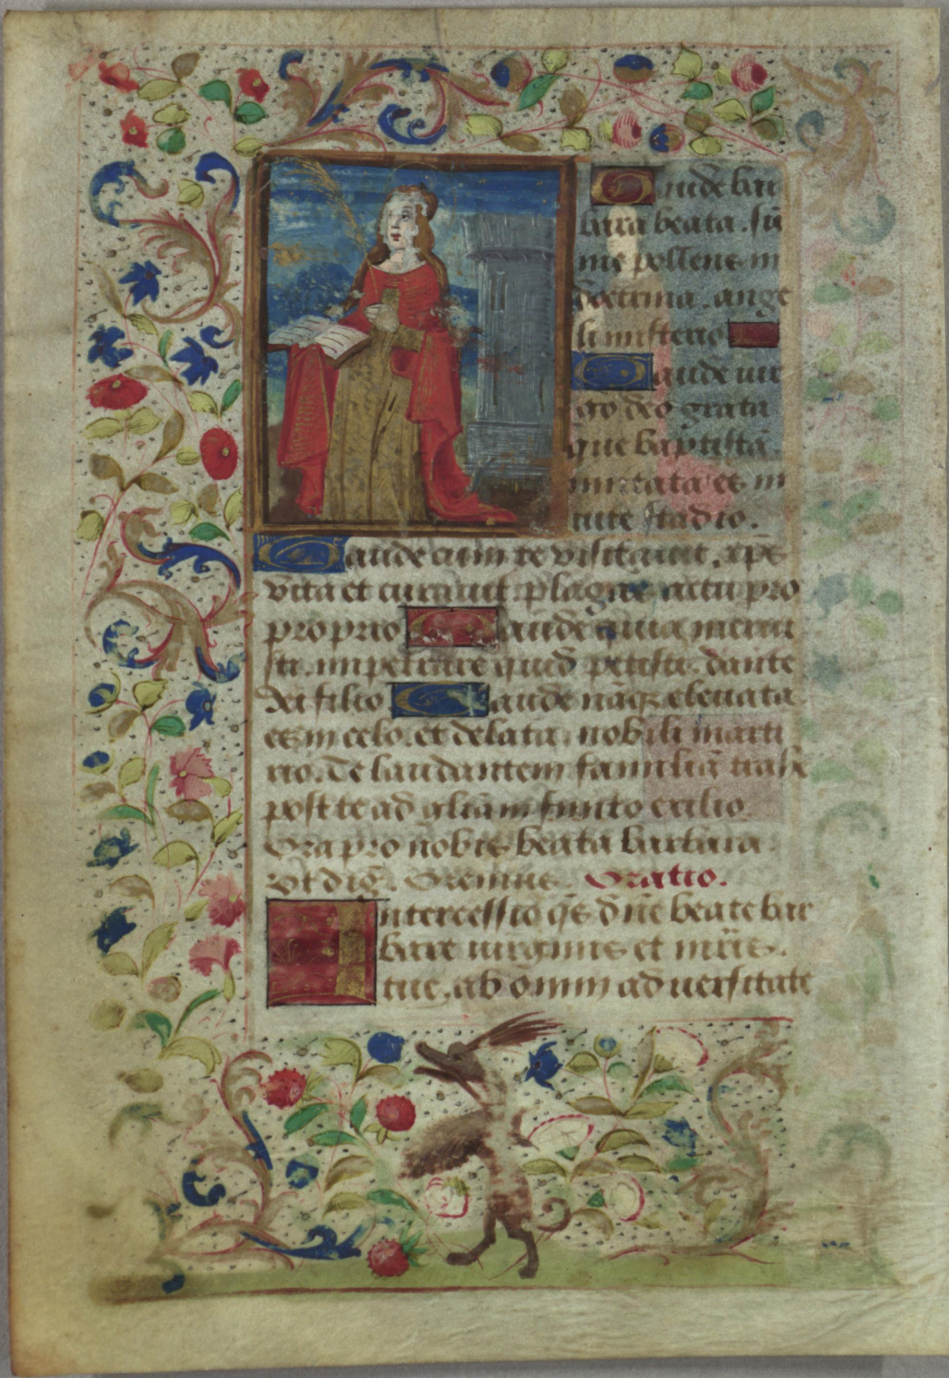 Gaude bar
bara beata. sū
me pollens in
doctrina. ange
li misterio
Gaude uir
go deo grata
que baptistā
imitata es in
uite stadio.
Gaude cum te visitauit. xp̄s
vita et curauit plagas actu pro
proprio Gaude quia merui
sti impetrare quid petisti. dante
dei filio Gaude naqꝫ eleuata
es in celo. et delata nobili marti
rio. Te laudantem familiā trahe
post te ad gliām finito exilio
Ora pro nobis beata barbara.
Vt dig̅. Oremus. Oratio.
Intercessio q̄s dn̄e beate bar
bare uirginis et mr̄is.
tue. ab omni aduersitate